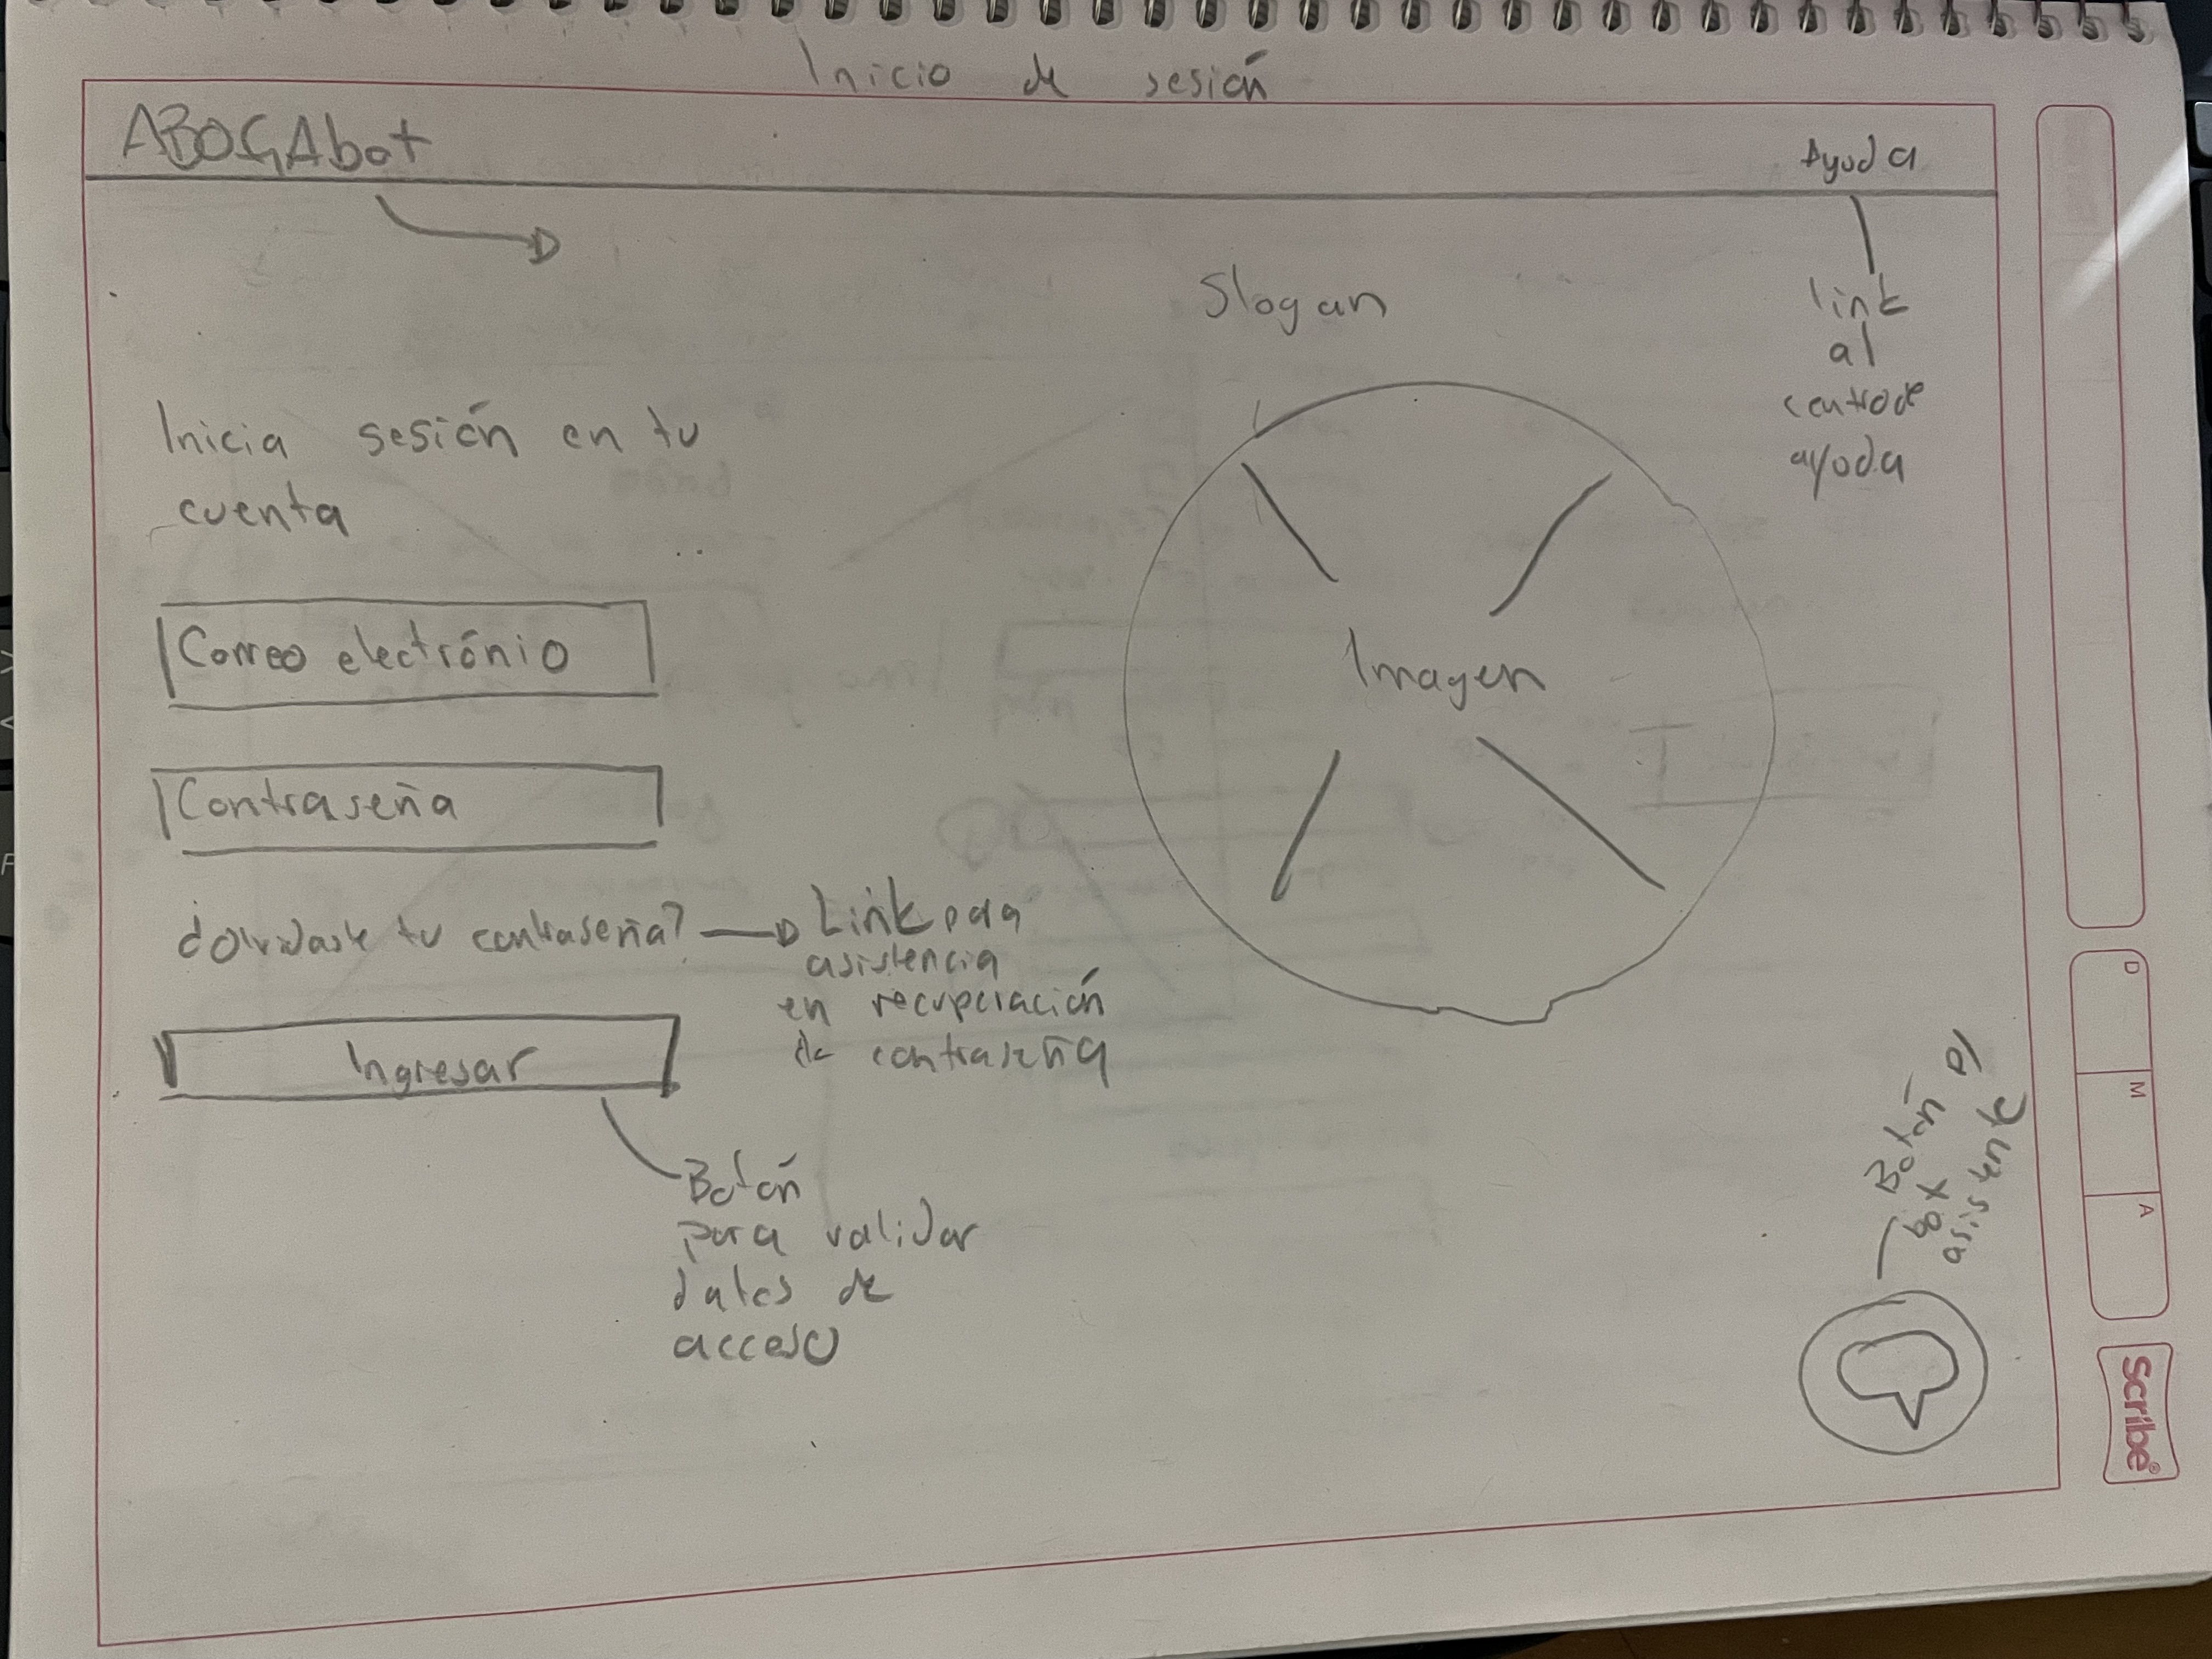 Inicio de sesión
ABOGAbot
Ayuda
link
al
centro de
ayuda
Slogan
Inicia sesión en tu
cuenta
Correo electrónio
Contraseña
¿Olvidaste tu contraseña?
Link para
asistencia
en recuperación
de contraseña
Ingresar
Botón
para validar
datos de
acceso
Imagen
Botón p/
bot
asistente
D
M
A
Scribe®